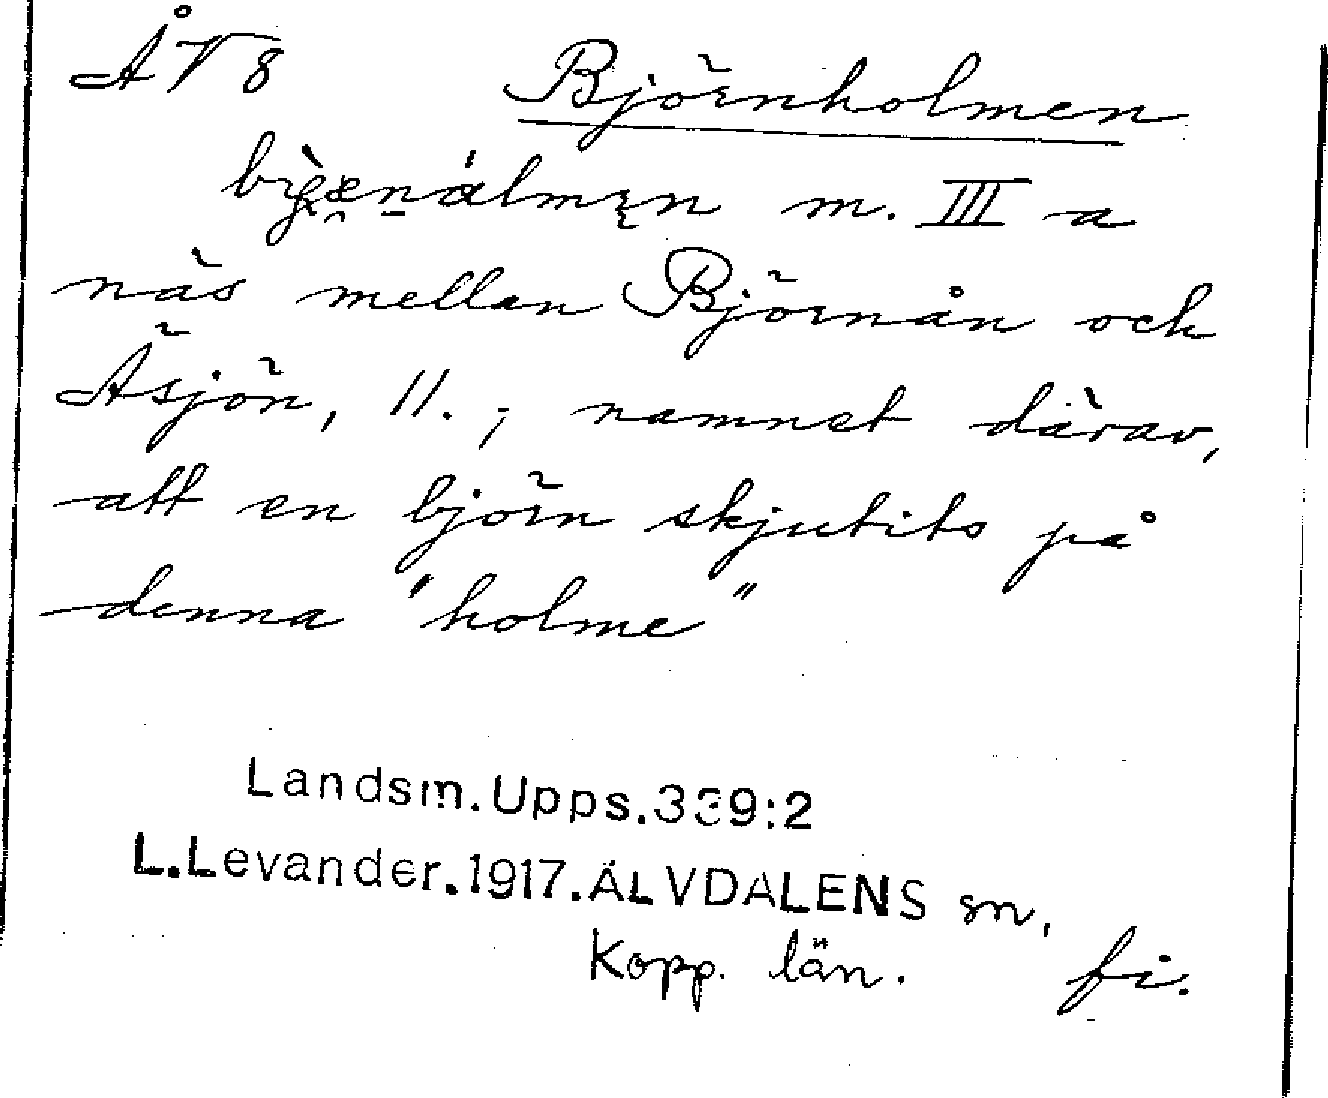 ÅT 8 Björnholmen
m. III a
näs mellan Björnån och
Åsjön, 11.; namnet därav,
att en björn skjutits på
denna "holme"
Landsm.Upps.339:2
L.Levander.1917.ÄLVDALENS sn,
Kopp. län. fi.